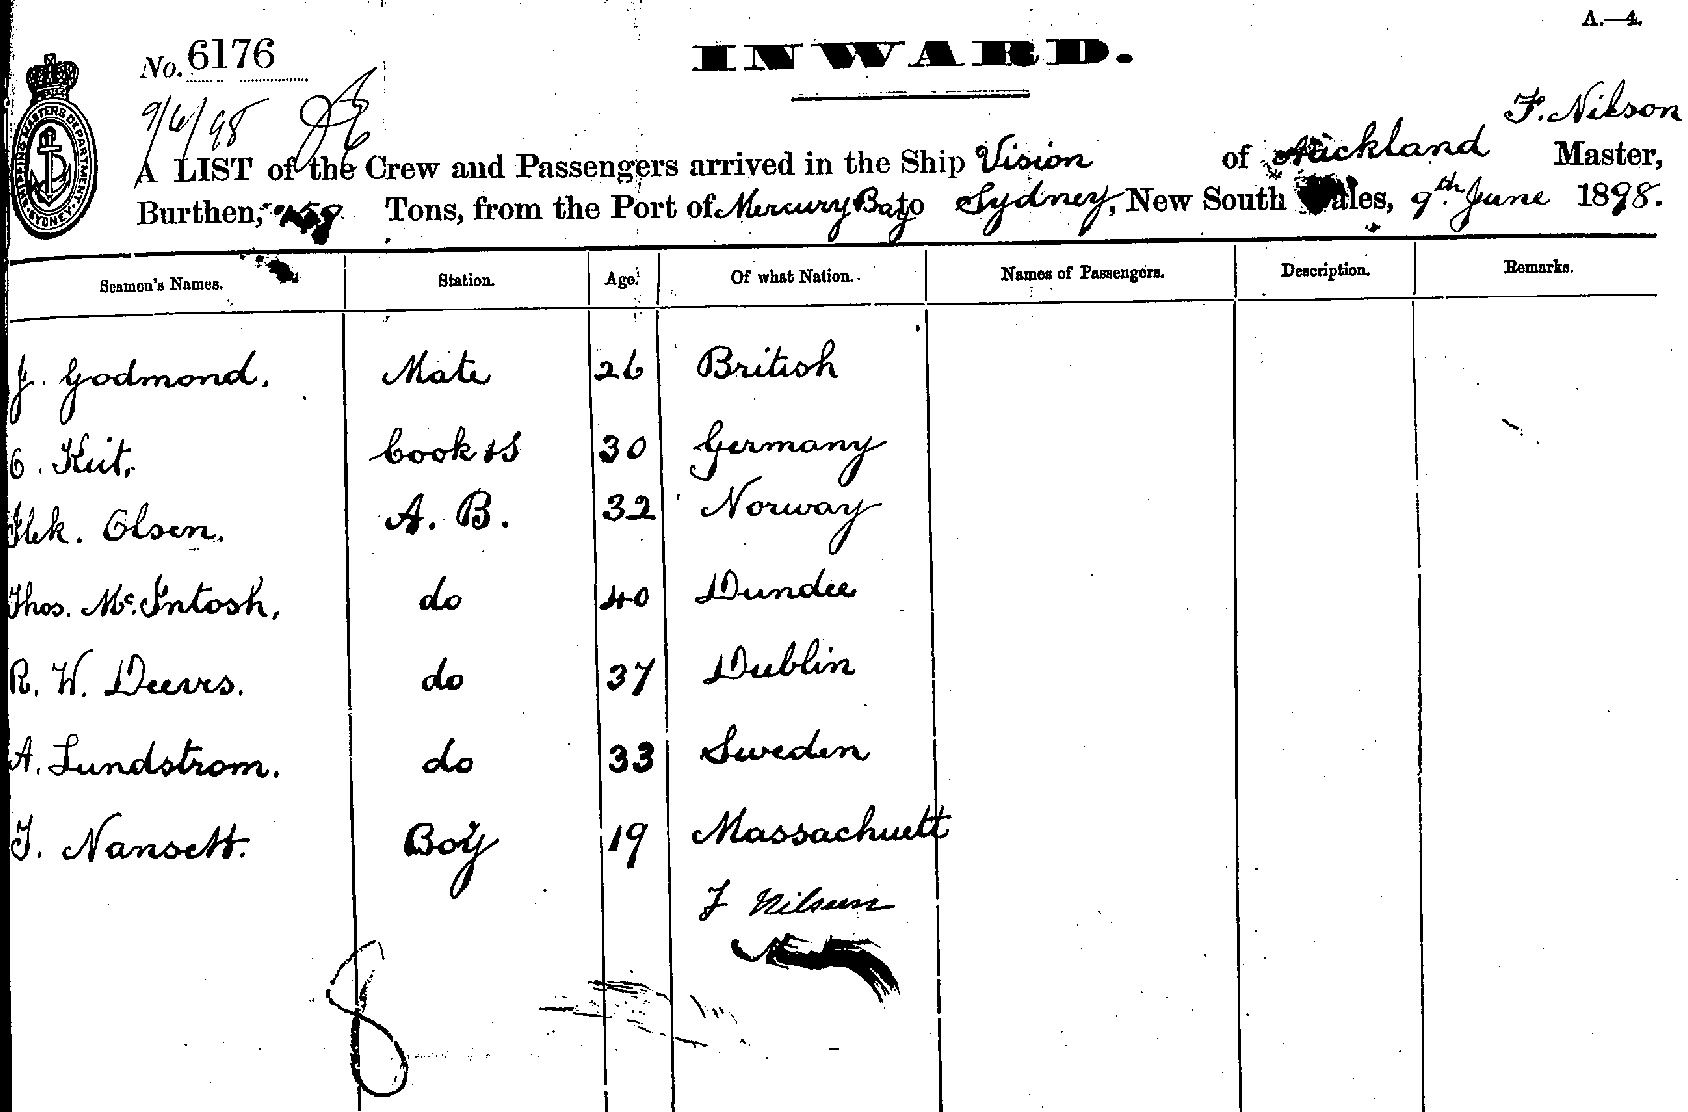 A.—4.
No. 6176
INWARD.
9/6/98
F. Nilson
A LIST of the Crew and Passengers arrived in the Ship Vision of Auckland Master,
Burthen, Tons, from the Port of Mercury Bay to Sydney, New South Wales, 9th June 1898.
SHIPPING MASTERS DEPARTMENT
Seamen's Names. Station. Age. Of what Nation. Names of Passengers. Description. Remarks.
J. Godmond. Mate 26 British
C. Keit. Cook &S 30 Germany
Olsen. A. B. 32 Norway
Thos. Mc.Intosh, do 40 Dundee
R. W. Deevrs. do 37 Dublin
A. Lundstrom. do 33 Sweden
J. Nansett. Boy 19 Massachuett
F Nilsen
8